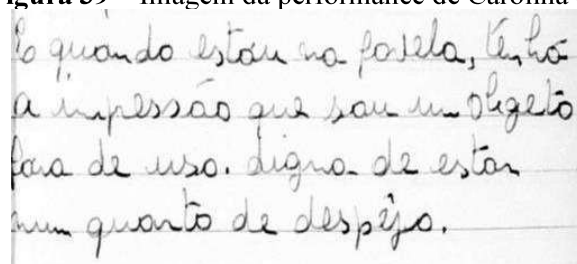 igura 39 – Imagem da performance de Carolina
E quando estou na favela, tenho
a impressão que sou um objeto
fora de uso. digno de estar
num quarto de despêjo.